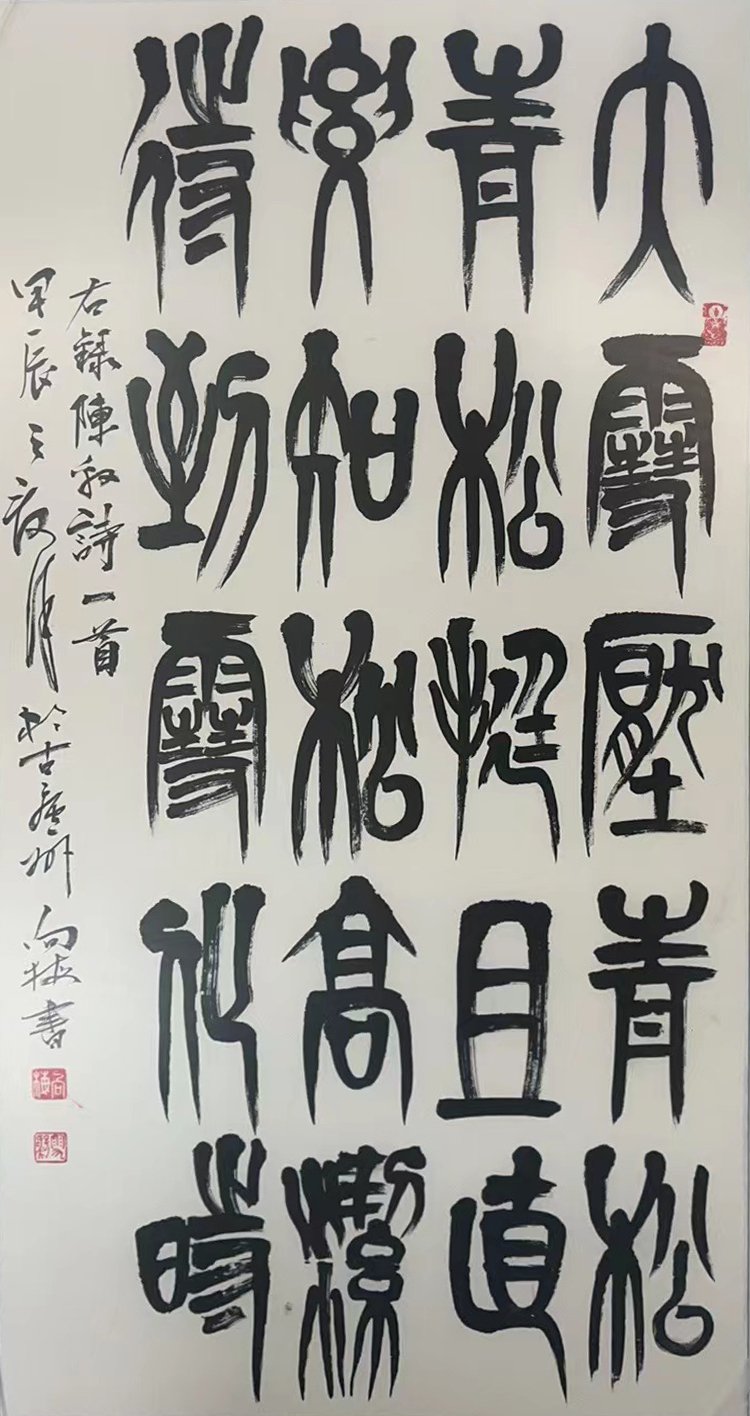 大雪壓青松
青松挺且直
要知松高潔
待到雪化時
右錄陳毅詩一首
甲辰之夏月於古廬州向梅書